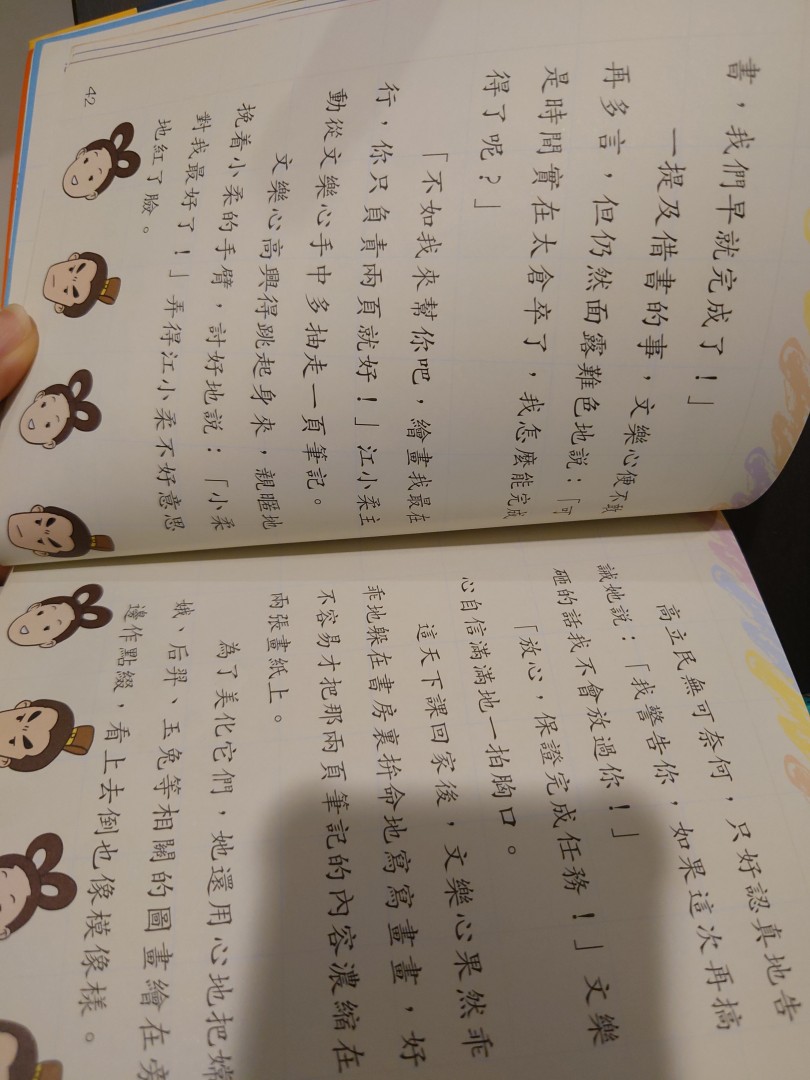 書，我們早就完成了！」
一提及借書的事，文樂心便不敢
再多言，但仍然面露難色地說：「可
是時間實在太倉卒了，我怎麼能完成
得了呢？」
「不如我來幫你吧，繪畫我最在
行，你只負責兩頁就好！」江小柔主
動從文樂心手中多抽走一頁筆記。
文樂心高興得跳起身來，親暱地
挽着小柔的手臂，討好地說：「小柔
對我最好了！」弄得江小柔不好意思
地紅了臉。
42
高立民無可奈何，只好認真地告
誡她說：「我警告你，如果這次再搞
砸的話我不會放過你！」
「放心，保證完成任務！」文樂
心自信滿滿地一拍胸口。
這天下課回家後，文樂心果然乖
乖地躲在書房裏拚命地寫寫畫畫，好
不容易才把那兩頁筆記的內容濃縮在
兩張畫紙上。
為了美化它們，她還用心地把嫦
娥、后羿、玉兔等相關的圖畫繪在旁
邊作點綴，看上去倒也像模像樣。